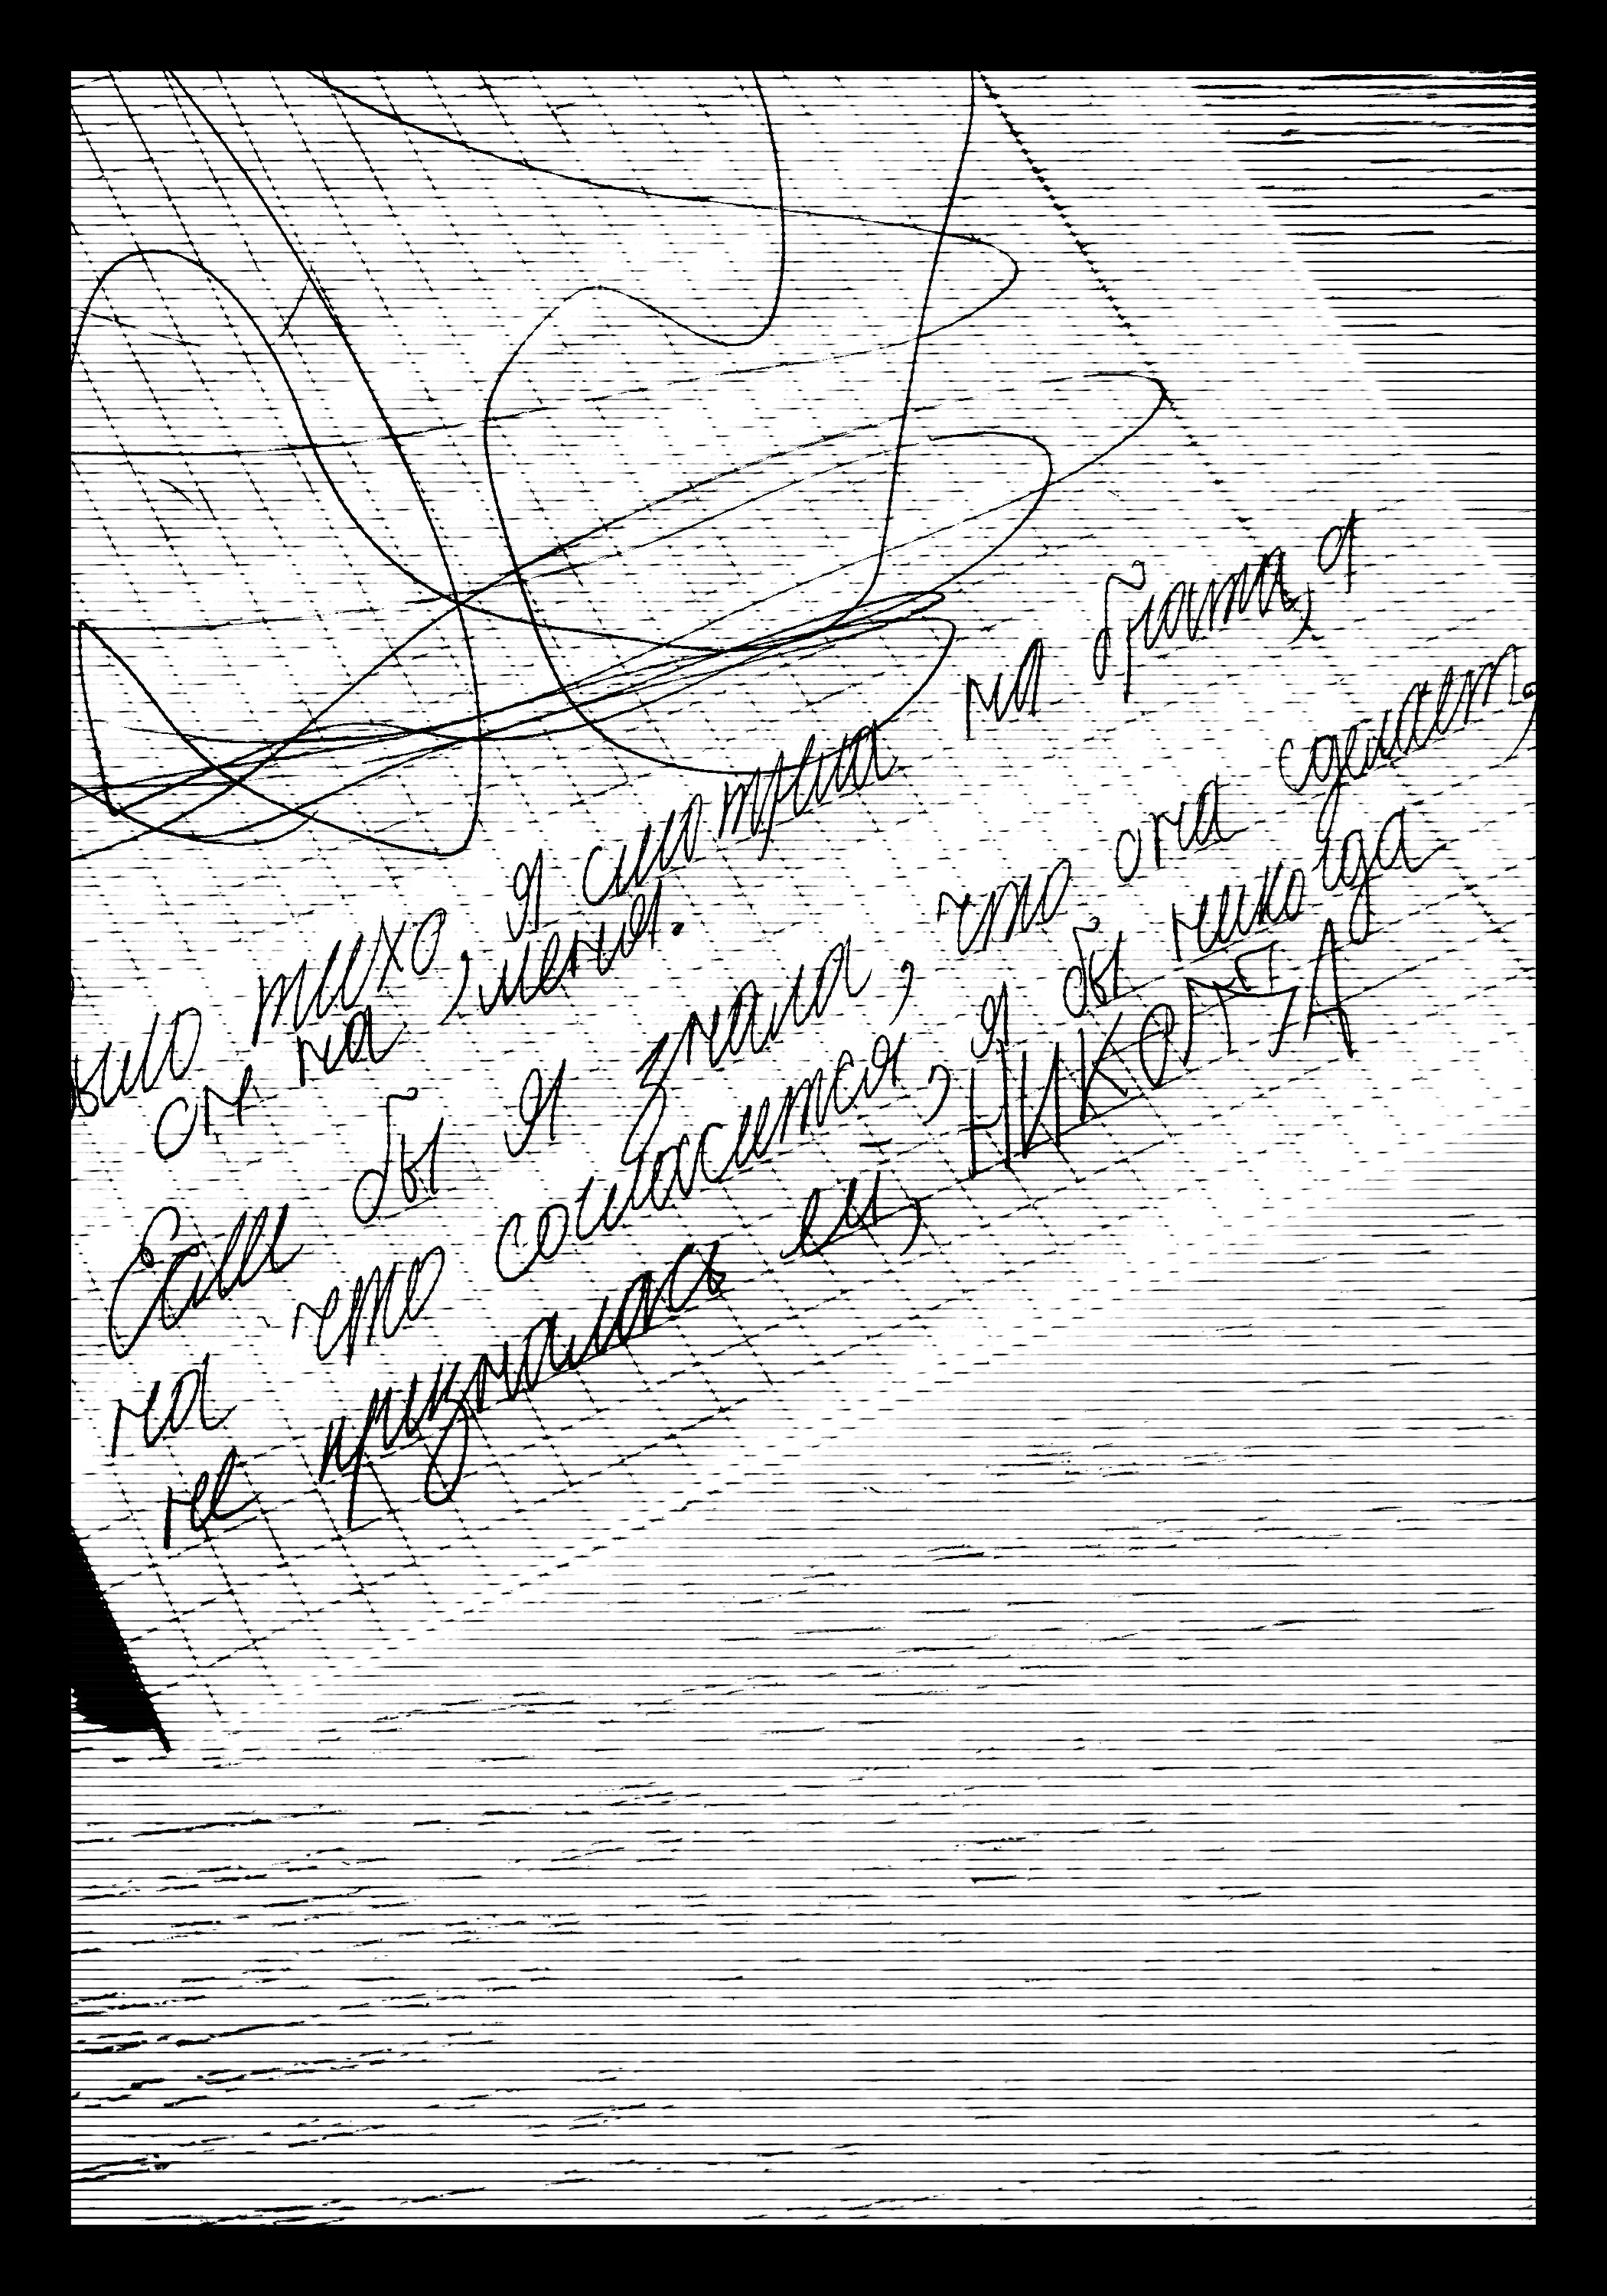 было тихо, я смотрела на брата, а
он на меня.
Если бы я знала, что она сделает,
на что согласится, я бы никогда
не призналась ей, НИКОГДА